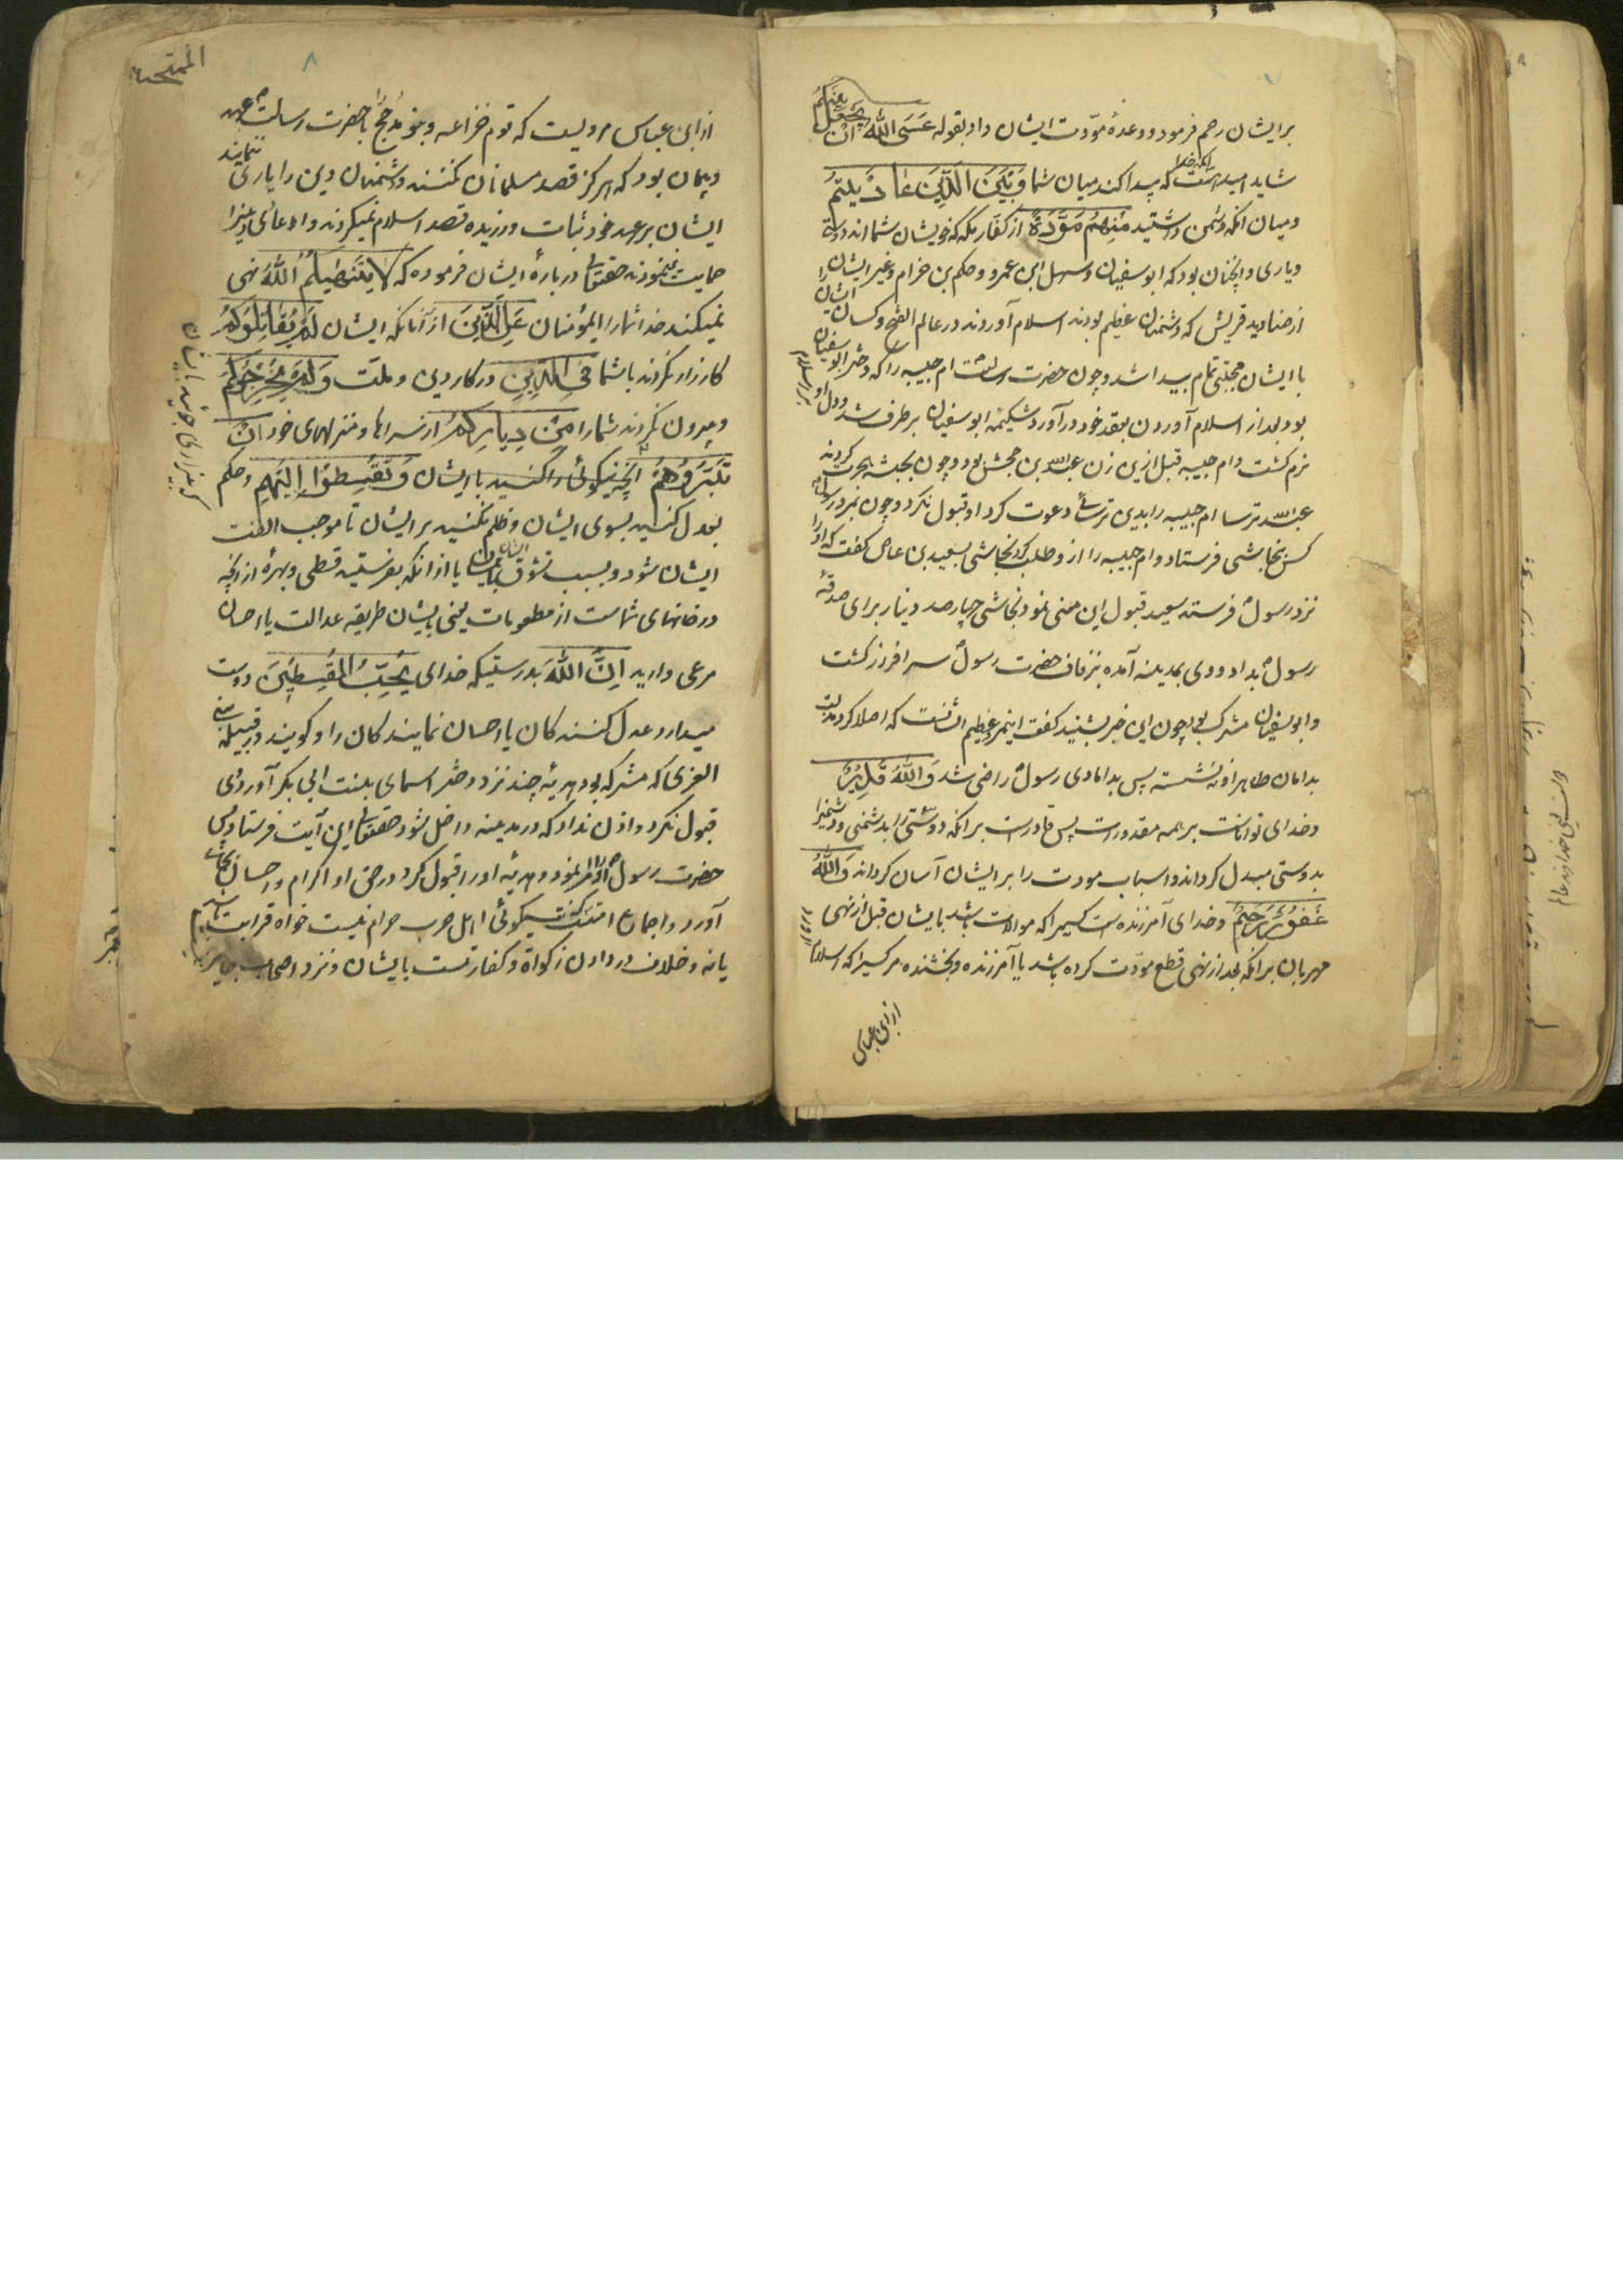 برایشان رحم فرمود و وعدهٔ مودّت ایشان داد بقوله عَسَى اللّٰهُ اَنْ يَجْعَلَ بَيْنَكُمْ
شاید امید است که پیدا کند میان شما وَبَيْنَ الَّذِينَ عَادَيْتُمْ
ومیان آنکه دشمن داشتید مِنْهُمْ مَوَدَّةً از کفار مکه که خویشان شمااند دوستی
ویاری وانچنان بود که ابوسفیان وسهل ابن عمرو وحکم بن حزام وغیر ایشان را
از صنادید قریش که دشمنان عظیم بودند اسلام آوردند در عالم الفتح وکسان ایشان
با ایشان محبتی تمام پیدا شد وچون حضرت رسالت ام حبیبه را که دختر ابوسفیان
بود بعد از اسلام آوردن بعقد خود درآورد شکیمهٔ ابوسفیان برطرف شد ودل او بر اسلام
نرم گشت وام حبیبه قبل ازین زن عبدالله بن جحش بود وچون بحبشه هجرت کردند
عبدالله ترسا ام حبیبه را بدین ترسائی دعوت کرد او قبول نکرد وچون بمرد رسول
کس بنجاشی فرستاد وام حبیبه را از و طلب کرد نجاشی بسعید بن عاص گفت که او را
نزد رسول فرستد سعید قبول این معنی نمود نجاشی چهارصد دینار برای صدقهٔ
رسول بداد و وی بمدینه آمده بزفاف حضرت رسول سرافراز گشت
وابوسفیان مشرک بود چون این خبر بشنید گفت
بدامان طاهر او ننشسته پس بدامادی رسول راضی شد وَاللّٰهُ قَدِيرٌ
وخدای تواناست بر همه مقدورات پس قادرست برانکه دوستی را بدشمنی ودشمنی را
بدوستی مبدل گرداند واسباب مودت را بر ایشان آسان گرداند وَاللّٰهُ
غَفُورٌ رَحِيمٌ وخدای آمرزنده است کسیرا که موالات باشد بایشان قبل از نهی
مهربان برانکه بعد از نهی قطع مودّت کرده باشد یا آمرزنده وبخشنده مر کسیرا که اسلام
از ابن عباس
الممتحنه
٨
از ابن عباس مرویست که قوم خزاعه وبنو مدحج با حضرت رسالت عهد
وپیمان بود که هرگز قصد مسلمانان نکنند ودشمنان دین را یاری ننمایند
ایشان بر عهد خود ثبات ورزیده قصد اسلام نمیکردند واعدای دینرا
حمایت نمینمودند حقتعالی دربارهٔ ایشان فرموده که لَا يَنْهٰيكُمُ اللّٰهُ نهی
نمیکند خدا شمارا ای مؤمنان عَنِ الَّذِينَ از آنانکه ایشان لَمْ يُقَاتِلُوكُمْ
کارزار نکردند باشما فِي الدِّينِ در کار دین وملت وَلَمْ يُخْرِجُوكُمْ
وبیرون نکردند شمارا مِنْ دِيَارِكُمْ از سراها ومنزلهای خود اَنْ
تَبَرُّوهُمْ انچه نیکوئی را کنید با ایشان وَتُقْسِطُوا اِلَيْهِمْ وحکم
بعدل کنید بسوی ایشان وظلم نکنید بر ایشان تا موجب الفت
ایشان شود وبسبب تشوق یا از آنکه بفرستید قسطی وبهرهٔ از انچه
در خانهای شماست از مطعومات یعنی بایشان طریقه عدالت یا احسان
مرعی دارید اِنَّ اللّٰهَ بدرستیکه خدای يُحِبُّ الْمُقْسِطِينَ دوست
میدارد عدل کنندکان یا احسان نمایندکان را وگویند قتیله
العزی که مشرکه بود هدیهٔ چند نزد دختر اسمای بنت ابی بکر آورد وی
قبول نکرد واذن نداد که در مدینه داخل شود حقتعالی این آیت فرستاد پس
حضرت رسول او را امر نمود وهدیهٔ او را قبول کرد ودر حق او اکرام واحسان بجای
آورد واجماع نیکوئی اهل حرب حرام نیست خواه قرابت باشد
یانه وخلاف در دادن زکواة وکفارتست بایشان ونزد اصحاب